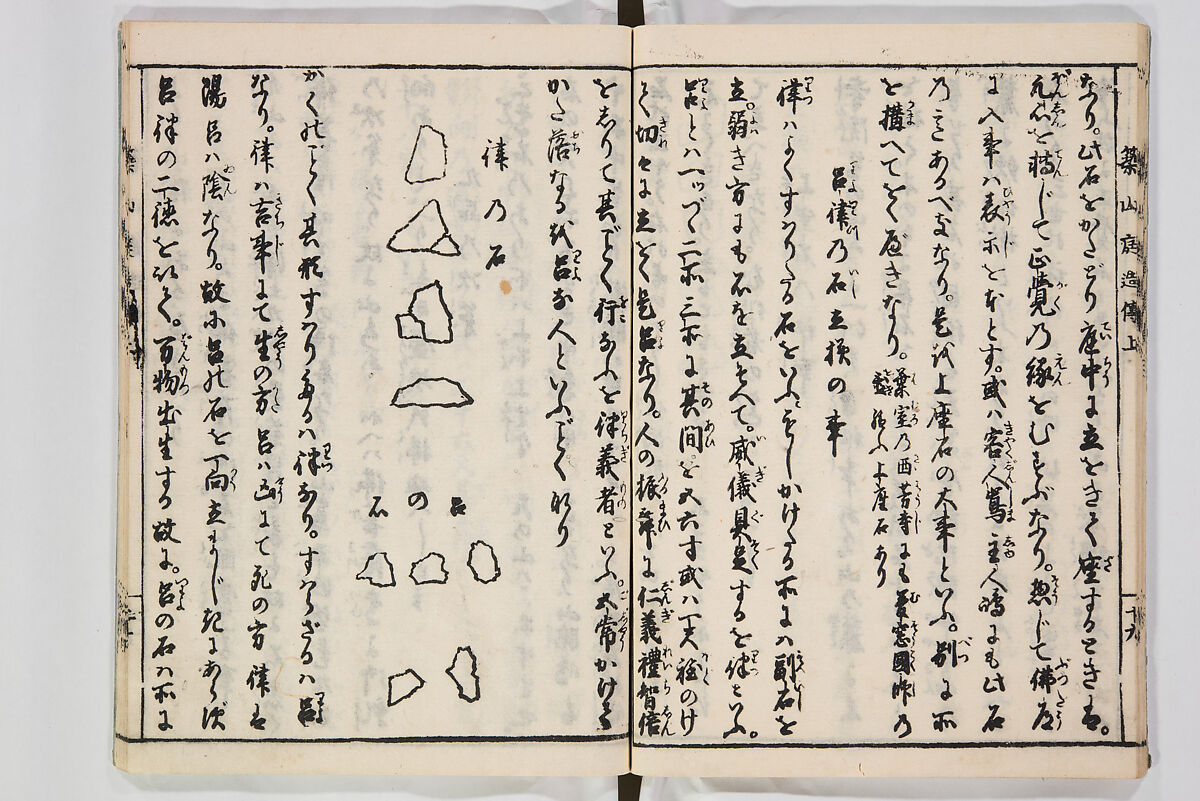 築山庭造傳上
十九
なり。此石をかたどり庭中に立をきて座するときは。
元心を轉じて正覺乃縁をむすぶなり。惣じて佛
に入事ハ表示を本とす。或ハ客人嶌主人嶋にも此石
乃こゝろあるべきなり。是則上座石の大事といふ。別に所
を構へてをくべきなり。葉室乃西芳寺にも夢窓國師乃
坐禅上座石あり
呂律乃石立様の事
律ハよくすハりたる石をいふ。すこしかけたる所にハ副石を
立。弱き方にも石を立そへて。威儀具足するを律といふ。
呂とハ一ツづゝ二所三所に其間を五六寸或ハ一丈
切々に立をく是呂なり。人の振舞に仁義禮智信
をしりて其ごとく行なふを律義者といふ。五常かけ
かた落なるを呂な人といふごとくなり
律乃石
呂の石
かくのごとく其形すハりたるハ律なり。すハらざるハ呂
なり。律ハ吉事にて生の方呂ハ凶にて死の方律は
陽呂ハ陰なり。故に呂の石を一向立まじきにあらず
呂律の二徳を以てをく。万物出生する故に。呂の石ハ所に